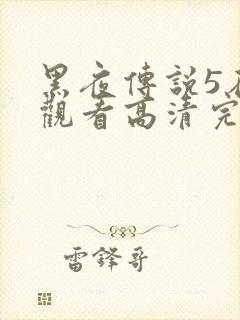 黑夜傳說5
觀看高清完
雷鋒哥